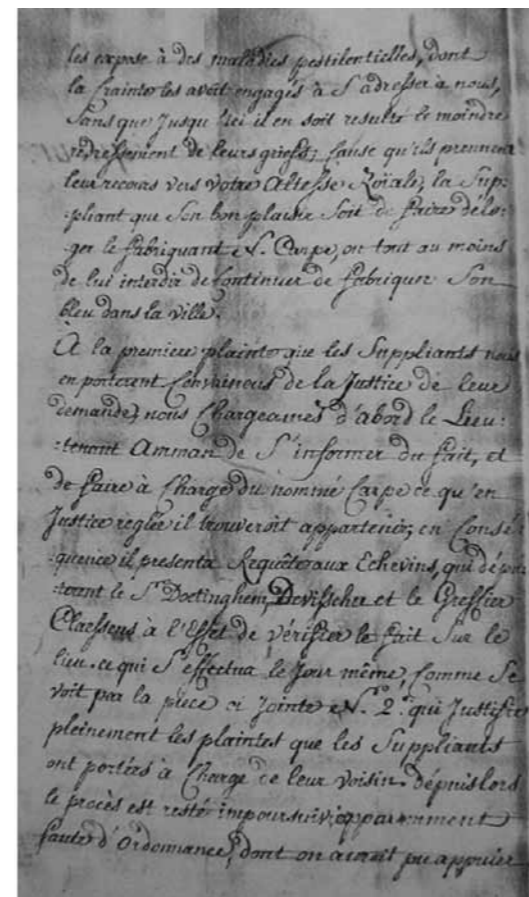 les expose à des maladies pestilentielles, dont
la crainte les avoit engagés à S'adresser à nous,
Sans que Jusqu'ici il en soit resulté le moindre
redressement de leurs griefs; Cause qu'ils prennent
leur recours vers Votre Altesse Roïale, la Sup-
-pliant que Son bon plaisir Soit de faire délo-
-ger le fabriquant N. Carpe, ou tout au moins
de lui interdir de Continuer de fabriquer Son
bleu dans la ville.
À la premiere plainte que les Suppliants nous
en porterent Convaincus de la Justice de leur
demande, nous Chargeames d'abord le Lieu:
:tenant Amman de S'informer du fait, et
de faire à Charge du nommé Carpe ce qu'en
Justice reglée il trouveroit appartenir; en Consé
-quence il presenta Requête aux Echevins, qui dépu
-terent le Sr. Doetinghem, Devisscher et le Greffier
Claessens à l'Effet de vérifier le fait Sur le
lieu. ce qui S'effectua le Jour même, Comme Se
voit par la piece ci Jointe N.º 2.º qui Justifie
pleinement les plaintes que les Suppliants
ont portées à Charge de leur Voisin. dépuis lors
le procès est resté impoursuivi apparemment
faute d'Ordonnance, dont on auroit pu appuier